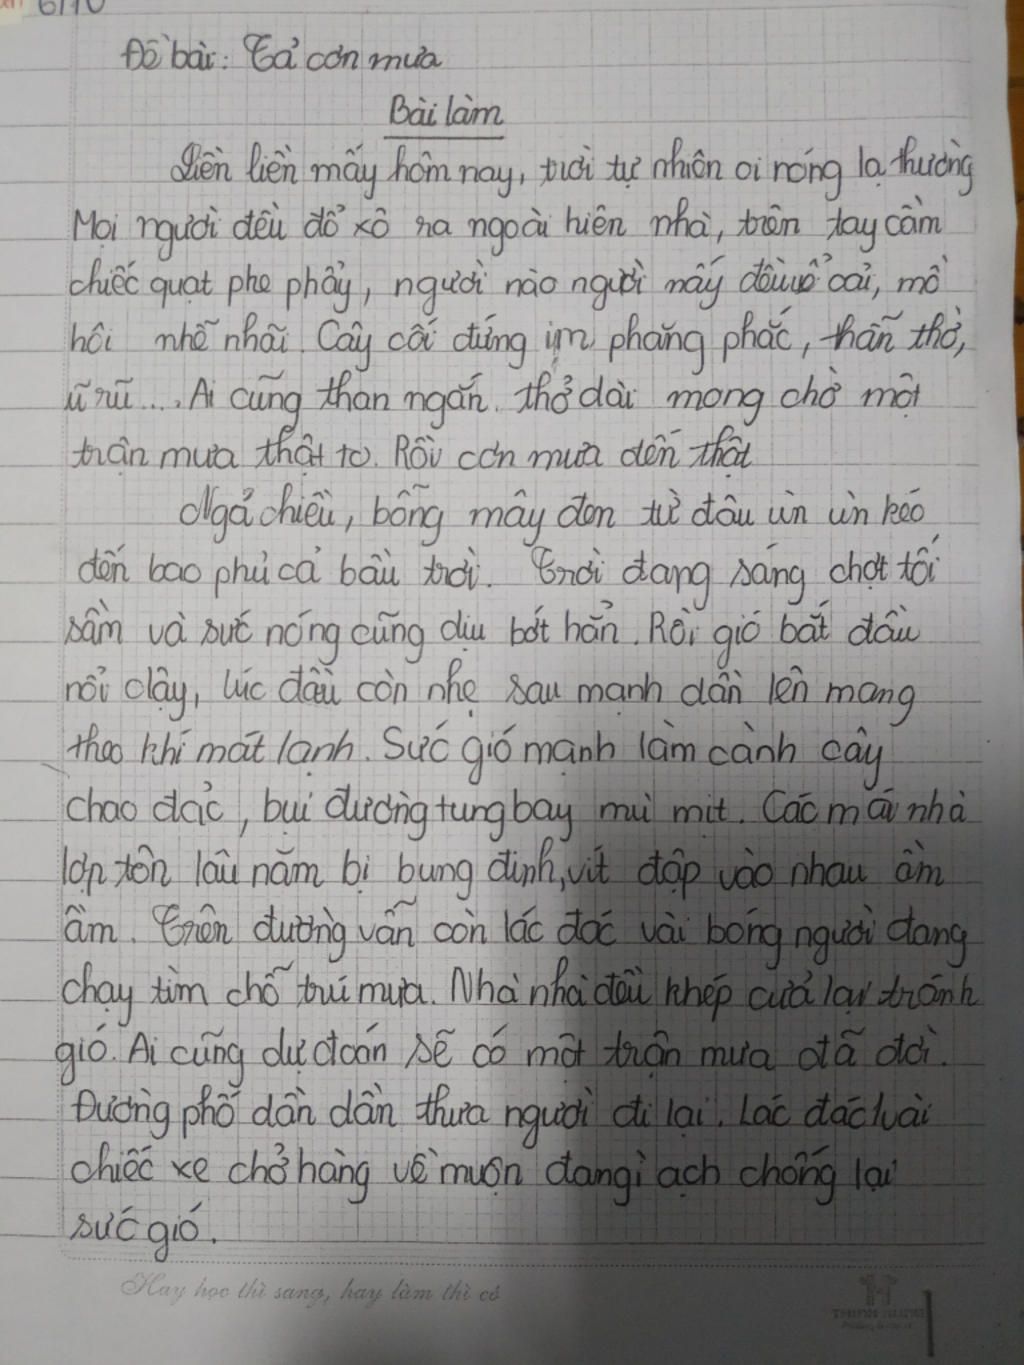 6/10
Đề bài: Tả cơn mưa
Bài làm
Liền liền mấy hôm nay, trời tự nhiên oi nóng lạ thường
Mọi người đều đổ xô ra ngoài hiên nhà, trên tay cầm
chiếc quạt phe phẩy, người nào người nấy đều uể oải, mồ
hôi nhễ nhãi. Cây cối đứng im phăng phắc, thẫn thờ,
ũ rũ.... Ai cũng than ngắn thở dài mong chờ một
trận mưa thật to. Rồi cơn mưa đến thật
Ngả chiều, bỗng mây đen từ đâu ùn ùn kéo
đến bao phủ cả bầu trời. Trời đang sáng chợt tối
sầm và sức nóng cũng dịu bớt hẳn. Rồi gió bắt đầu
nổi dậy, lúc đầu còn nhẹ sau mạnh dần lên mang
theo khí mát lạnh. Sức gió mạnh làm cành cây
chao đảc, bụi đường tung bay mù mịt. Các mái nhà
lợp tôn lâu năm bị bung đinh, vít đập vào nhau ầm
ầm. Trên đường vẫn còn lác đác vài bóng người đang
chạy tìm chỗ trú mưa. Nhà nhà đều khép cửa lại tránh
gió. Ai cũng dự đoán sẽ có một trận mưa đã đời.
Đường phố dần dần thưa người đi lại. Lác đác vài
chiếc xe chở hàng về muộn đang ì ạch chống lại
sức gió.
Hay học thì sang, hay làm thì có